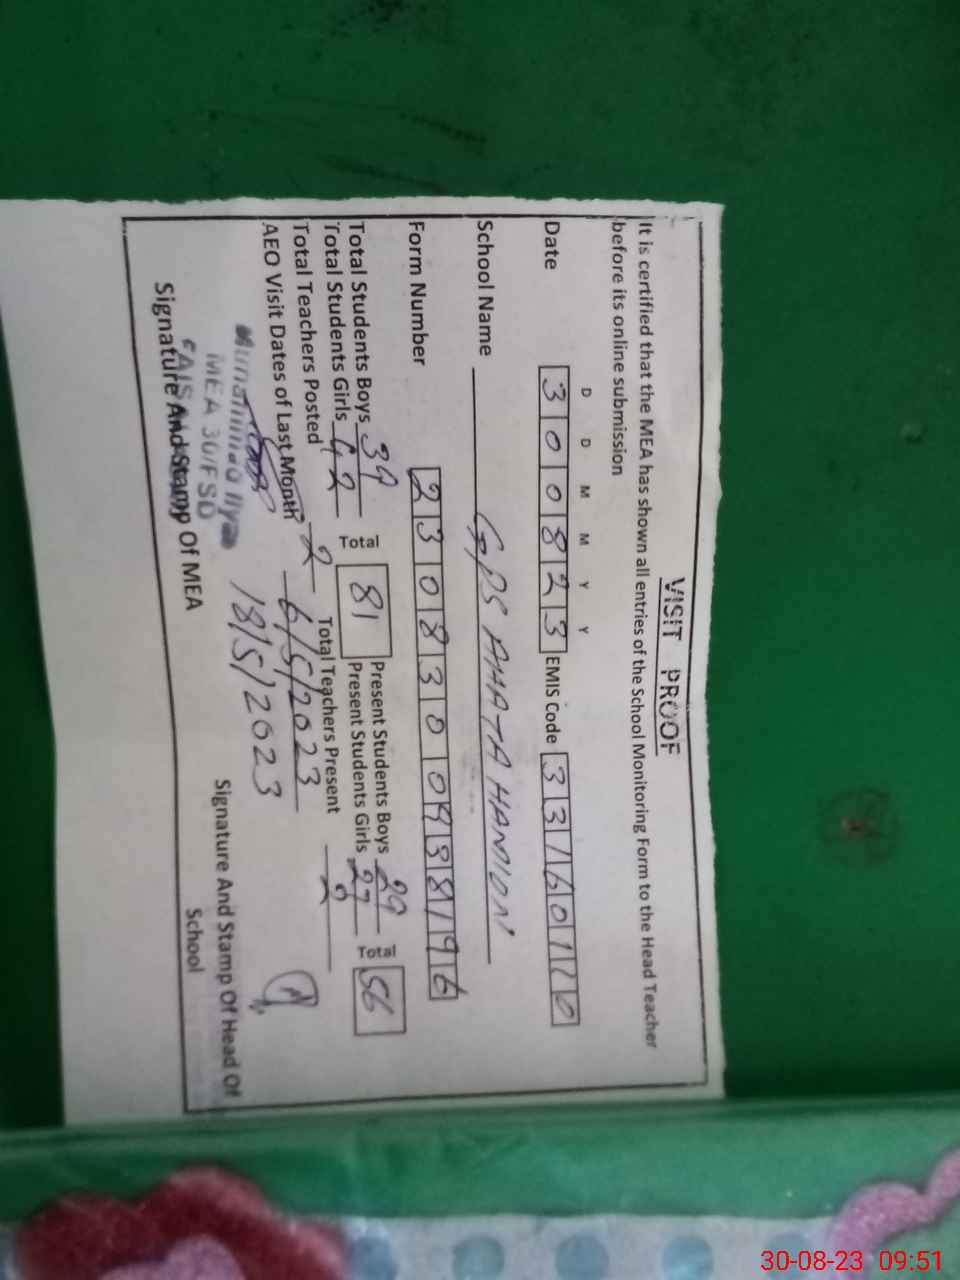 VISIT PROOF
It is certified that the MEA has shown all entries of the School Monitoring Form to the Head Teacher
before its online submission
D D M M Y Y
Date 300823 EMIS Code 33760110
School Name GPS AHATA HAMION
Form Number 2308300498196
Total Students Boys 39 Total 81 Present Students Boys 29 Total 56
Total Students Girls 42 Present Students Girls 27
Total Teachers Posted 2 Total Teachers Present 2
AEO Visit Dates of Last Month 6/5/2023
18/5/2023
MEA 30/FSD
Signature And Stamp Of MEA
Signature And Stamp Of Head Of
School
30-08-23 09:51